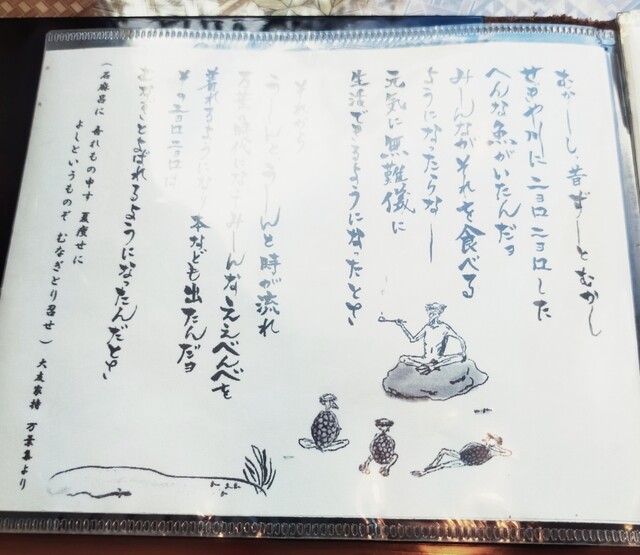 むかーしし、昔ずーとむかし
せきや川にニョロニョロした
へんな魚がいたんだョ
みーんながそれを食べる
ようになったらなー
元気に無難儀に
生活できるようになったとさ
それから
うーんとうーんと時が流れ
万葉の時代になってみーんなええべんべを
着れるようになり本なども出たんだョ
そのニョロニョロは
むなぎとよばれるようになったんだとさ
(石麻呂に 吾れもの申す 夏痩せに
よしというものぞ むなぎとり召せ) 大友家持 万葉集より